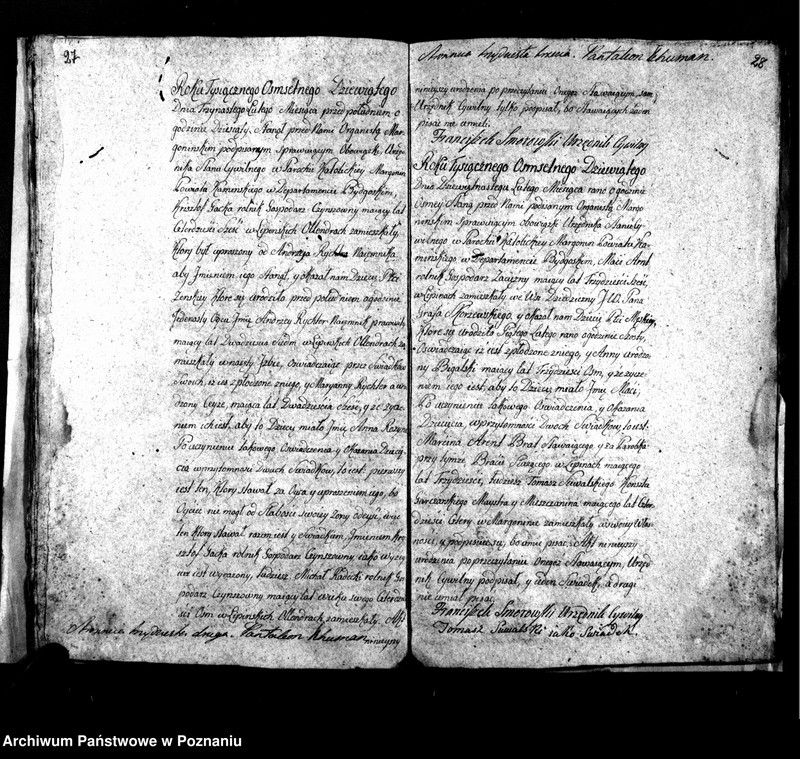 27
Roku Tysiącznego Osmsetnego Dziewiątego
Dnia Trzynastego Lutego Miesiąca przed południem o
godzinie Dziesiąty, Stanął przed Nami Organistą Mar-
gonińskim podpisanym Sprawuiącym Obowiązki Urzę-
nika Stanu Cywilnego w Parochii Katolickiey Margonin
Powiatu Kaminskiego w Departamencie Bydgoskim,
Krzysztof Gacka rolnik Gospodarz Czynszowny maiący lat
Czterdzieści Sześć w Lipinskich Ollendrach zamieszkały,
Ktory był uproszony od Andrzeja Rychter Naiemnika
aby Imieniem iego Stanął, y okazał nam Dziecię Płci
Zenskiey ktore się urodziło przed południem o godzinie
Jedenasty Oyca Imię Andrzey Rychter Naiemnik
maiący lat Dwadzieścia Siedm w Lipinskich Ollendrach za-
mieszkały w naięty Izbie, Oswiadczaiąc przez Swiadków
Swoich, iż ies z płodzone z niego, y Maryanny Rychter
maiąca lat Dwadzieścia Sześć, y ze życze-
niem ich iest, aby to Dziecię miało Imię Anna
Po uczynieniu takowego Oswiadczenia y Okazania Dziecię-
cia w przytomności Dwuch Swiadków, to iest: pierwszy
iest ten, ktory stawał za Oyca y uproszeniem iego, bo
Oyciec nie mogł od Słabości swoiey żony odeyść, więc
ten ktory stawał razem iest y Swiadkiem, Imieniem Krzy-
sztof Gacka rolnik Gospodarz Czynszowny iako wyżey
iest wyrażony, tudziesz Michał Radecki rolnik Gos-
podarz Czynszowny maiący lat wieku swego Czterdzie-
ści Osm w Lipinskich Ollendrach zamieszkały, Akt
ninieyszy
Stronica trzydziesta druga. Pantaleon Khuman
Stronica trzydziesta trzecia. Pantaleon Khuman.
28
ninieyszy urodzenia po przeczytaniu Onegoż Stawaiącym, sam
Urzędnik Cywilny tylko podpisał, bo Stawaiących żaden
pisać nie umieli.
Franciszek Smorowski Urzędnik Cywilny
Roku Tysiącznego Osmsetnego Dziewiątego
Dnia Dziewiętnastego Lutego Miesiąca rano o godzinie
Osmey Stanął przed Nami podpisanym Organistą Margo-
ninskim Sprawuiącym obowiązki Urzędnika Stanu Cy-
wilnego w Parochii Katolickiey Margonin Powiatu Ka-
minskiego w Departamencie Bydgoskim, Maci Arnt
rolnik Gospodarz Zaciężny maiący lat Trzydzieści Sześć,
w Lipinach zamieszkały we Wsi Dziedziczny J.W. Pana
Grafa Skorzewskiego, y okazał nam Dziecię Płci Męskiey,
ktore się urodziło Piątego Lutego rano o godzinie Szosty,
Oswiadczaiąc iż iest z płodzone z niego, y Anny urodzo-
ny Bigalski maiący lat Trzydzieści Osm, y ze życze-
niem iego iest, aby to Dziecię miało Imię Maci,
Po uczynieniu takowego Oswiadczenia, y Okazania
Dziecięcia w przytomności Dwoch Swiadków to iest:
Marcina Arent Brat Stawaiącego y za Parobka
przy tymże Bracie Służącego w Lipinach maiącego
lat Trzydzieści, tudziesz Tomasz Suwalskiego
Garczarskiego Maystra y Mieszczanina maiącego lat Czter-
dzieści Cztery w Margoninie zamieszkały w swoiey Włas-
ności, y podpisuie się, bo umie pisać, Akt ninieyszy
urodzenia po przeczytaniu Onegoż Stawaiącym, Urzęd-
nik Cywilny podpisał, y ieden Swiadek, a drugi
nie umiał pisać
Franciszek Smorowski Urzędnik Cywilny
Tomasz Suwalski iako Swiadek.
Archiwum Państwowe w Poznaniu